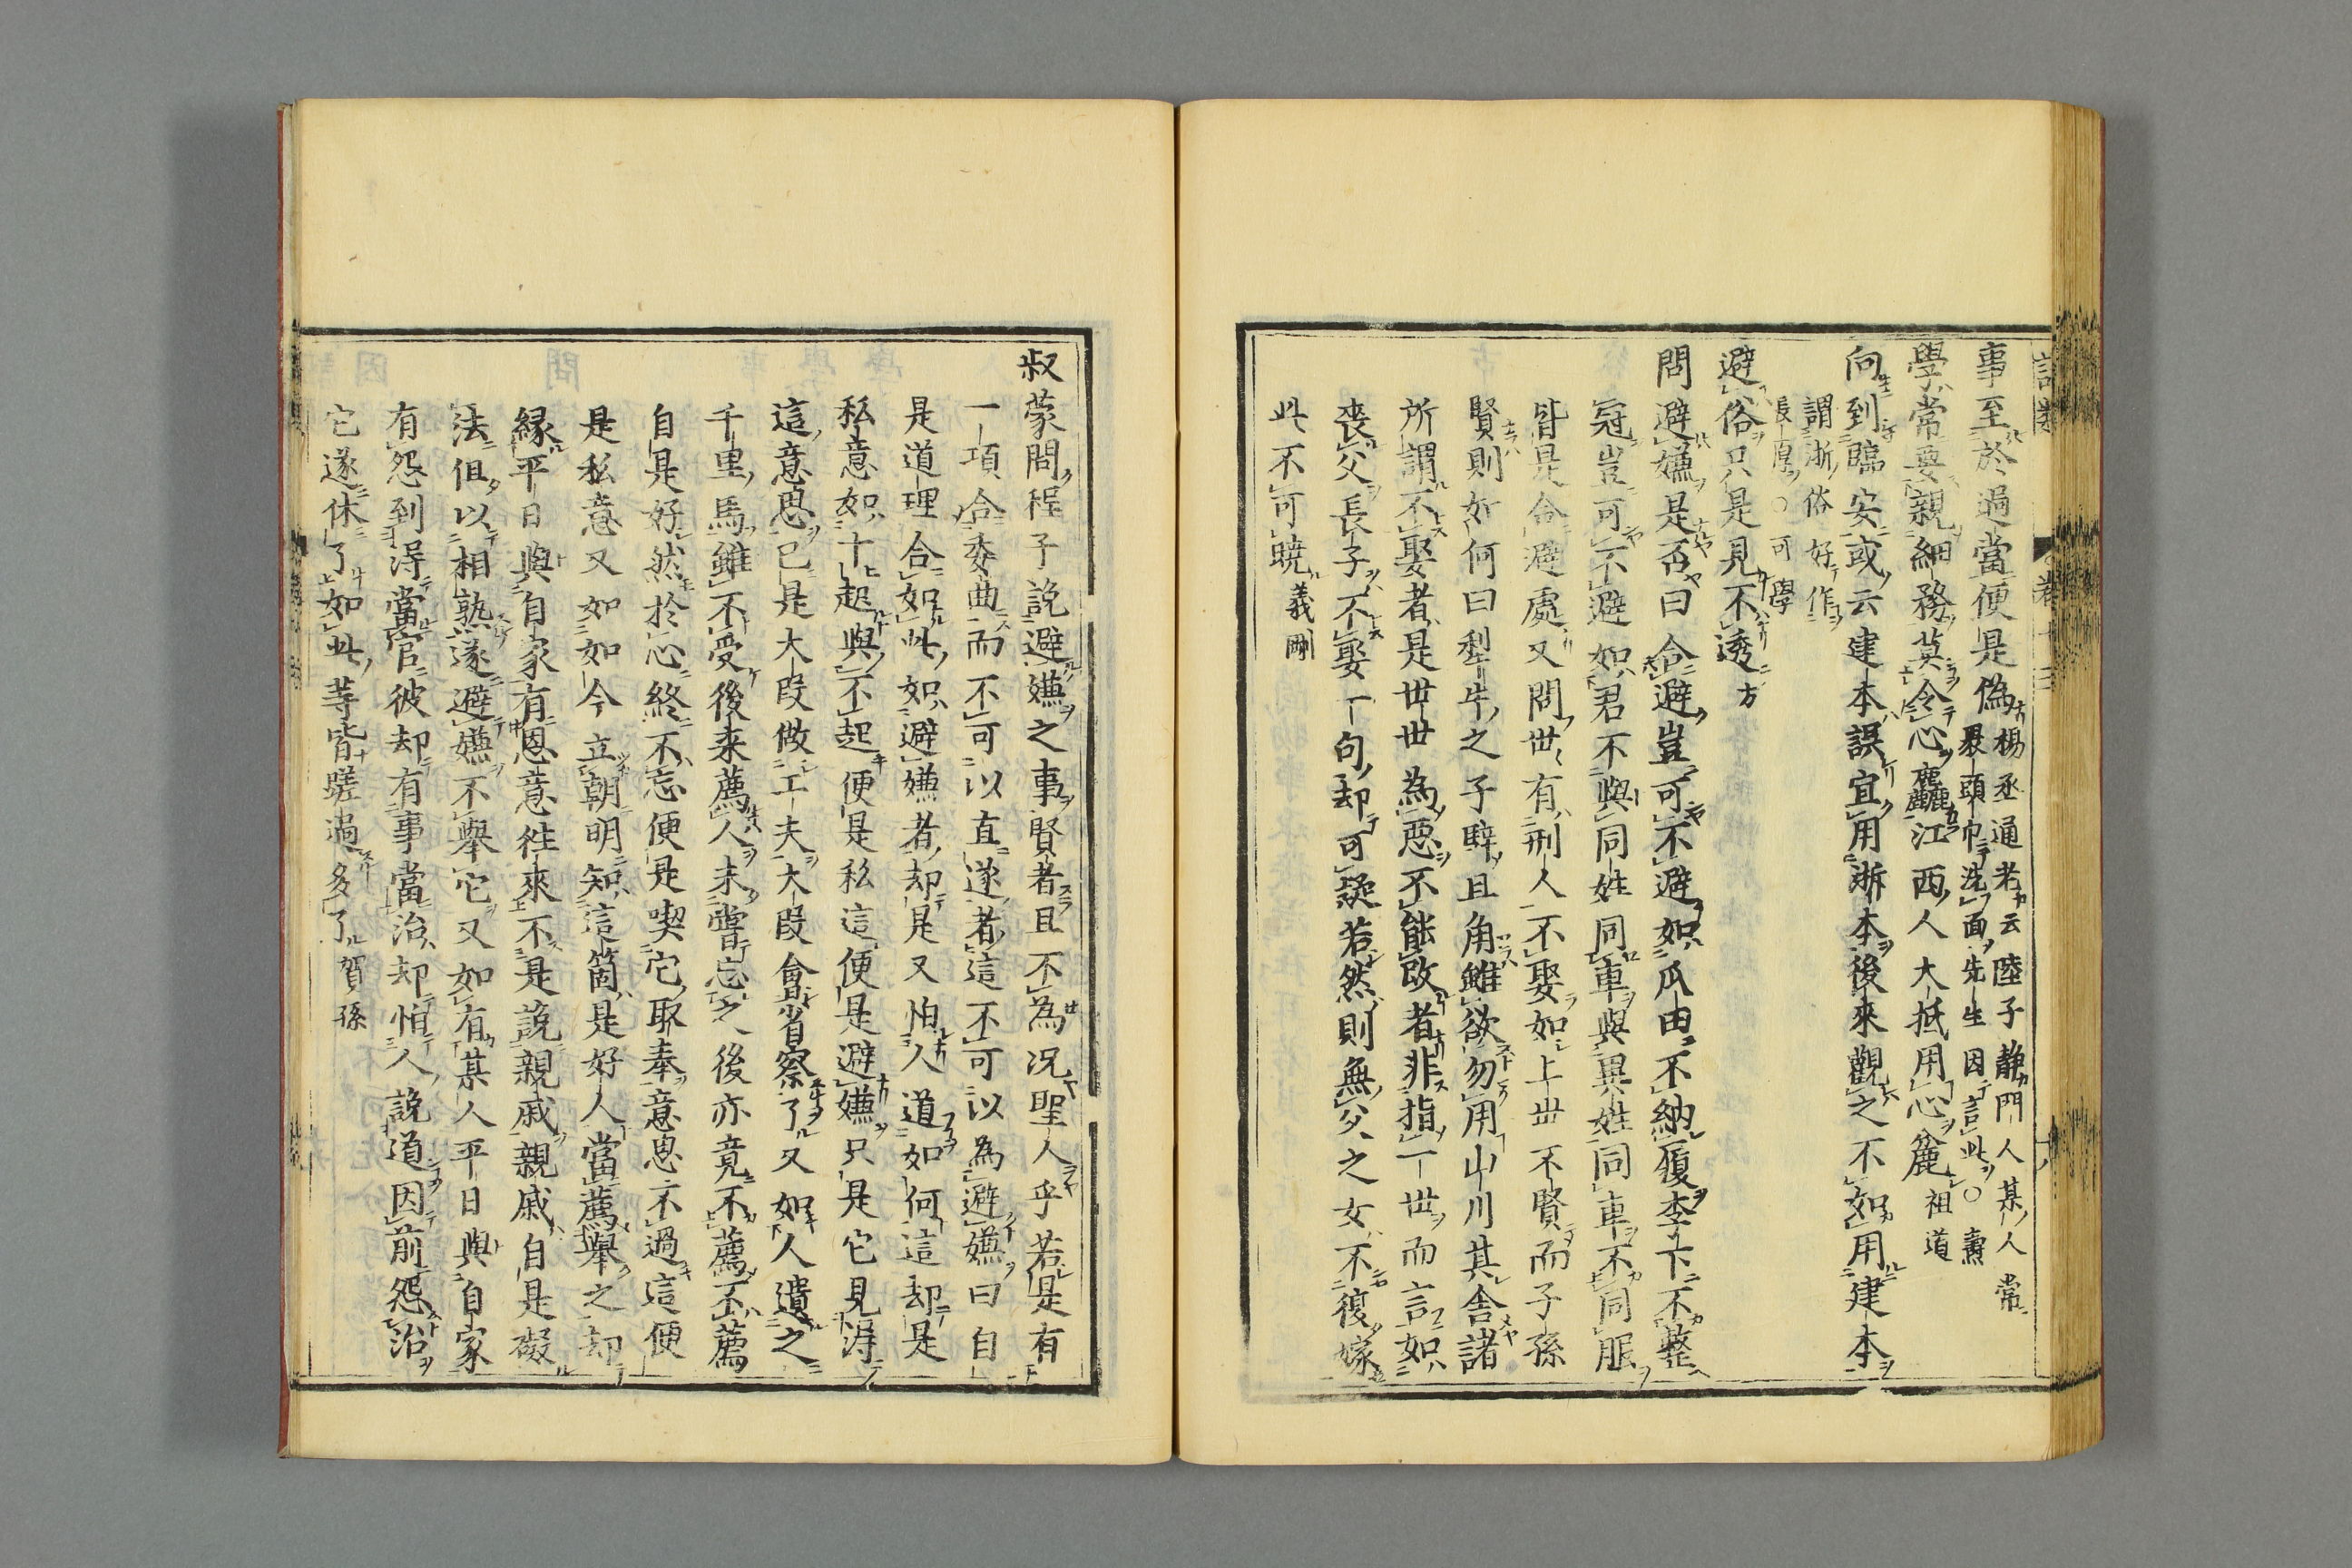 事至於過當便是偽楊丞通老云陸子靜門人某人常
褁頭巾洗面先生因言此○壽
學常要親細務莫令心麤江西人大抵用心麁祖道
向到臨安或云建本誤宜用浙本後來觀之不如用建本
謂浙俗好作
長厚○可學
避俗只是見不透方
問避嫌是否曰合避豈可不避如瓜田不納履李下不整
冠豈可不避如君不與同姓同車與異姓同車不同服
皆是合避處又問世有刑人不娶如上世不賢而子孫
賢則如何曰犁牛之子騂且角雖欲勿用山川其舍諸
所謂不娶者是世世為惡不能改者非指一世而言如
喪父長子不娶一句却可疑若然則無父之女不復嫁
此不可曉義剛
叔蒙問程子說避嫌之事賢者且不為况聖人乎若是有
一項合委曲而不可以直遂者這不可以為避嫌曰自
是道理合如此如避嫌者却是又怕人道如何這却是
私意如十起與不起便是私這便是避嫌只是它見得
這意思已是大段做工夫大段會省察了又如人遺之
千里馬雖不受後来薦人未嘗忘之後亦竟不薦不薦
自是好然於心終不忘便是喫它取奉意思不過這便
是私意又如如今立朝明知這箇是好人當薦舉之却
緣平日與自家有恩意徃來不是說親戚親戚自是礙
法但以相熟遂避嫌不舉它又如有某人平日與自家
有怨到得當官彼却有事當治却怕人說道因前怨治
它遂休了如此等皆蹉過多了賀孫